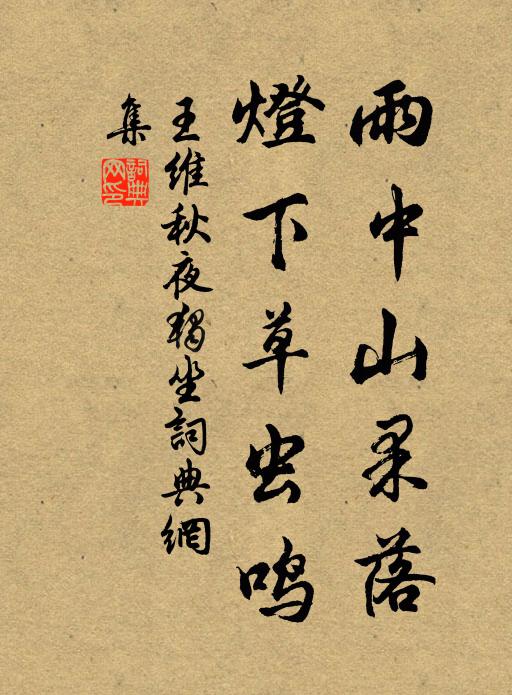 雨中山果落
燈下草虫鸣
王维秋夜獨坐詞典網
集
詞典
网印